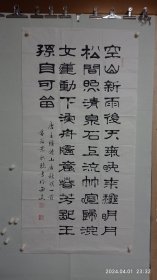 空山新雨後天氣晚來秋明月
松間照清泉石上流竹喧歸浣
女蓮動下漁舟隨意春芳歇王
孫自可留
唐王維詩山居秋暝一首
2024.04.01 23:32